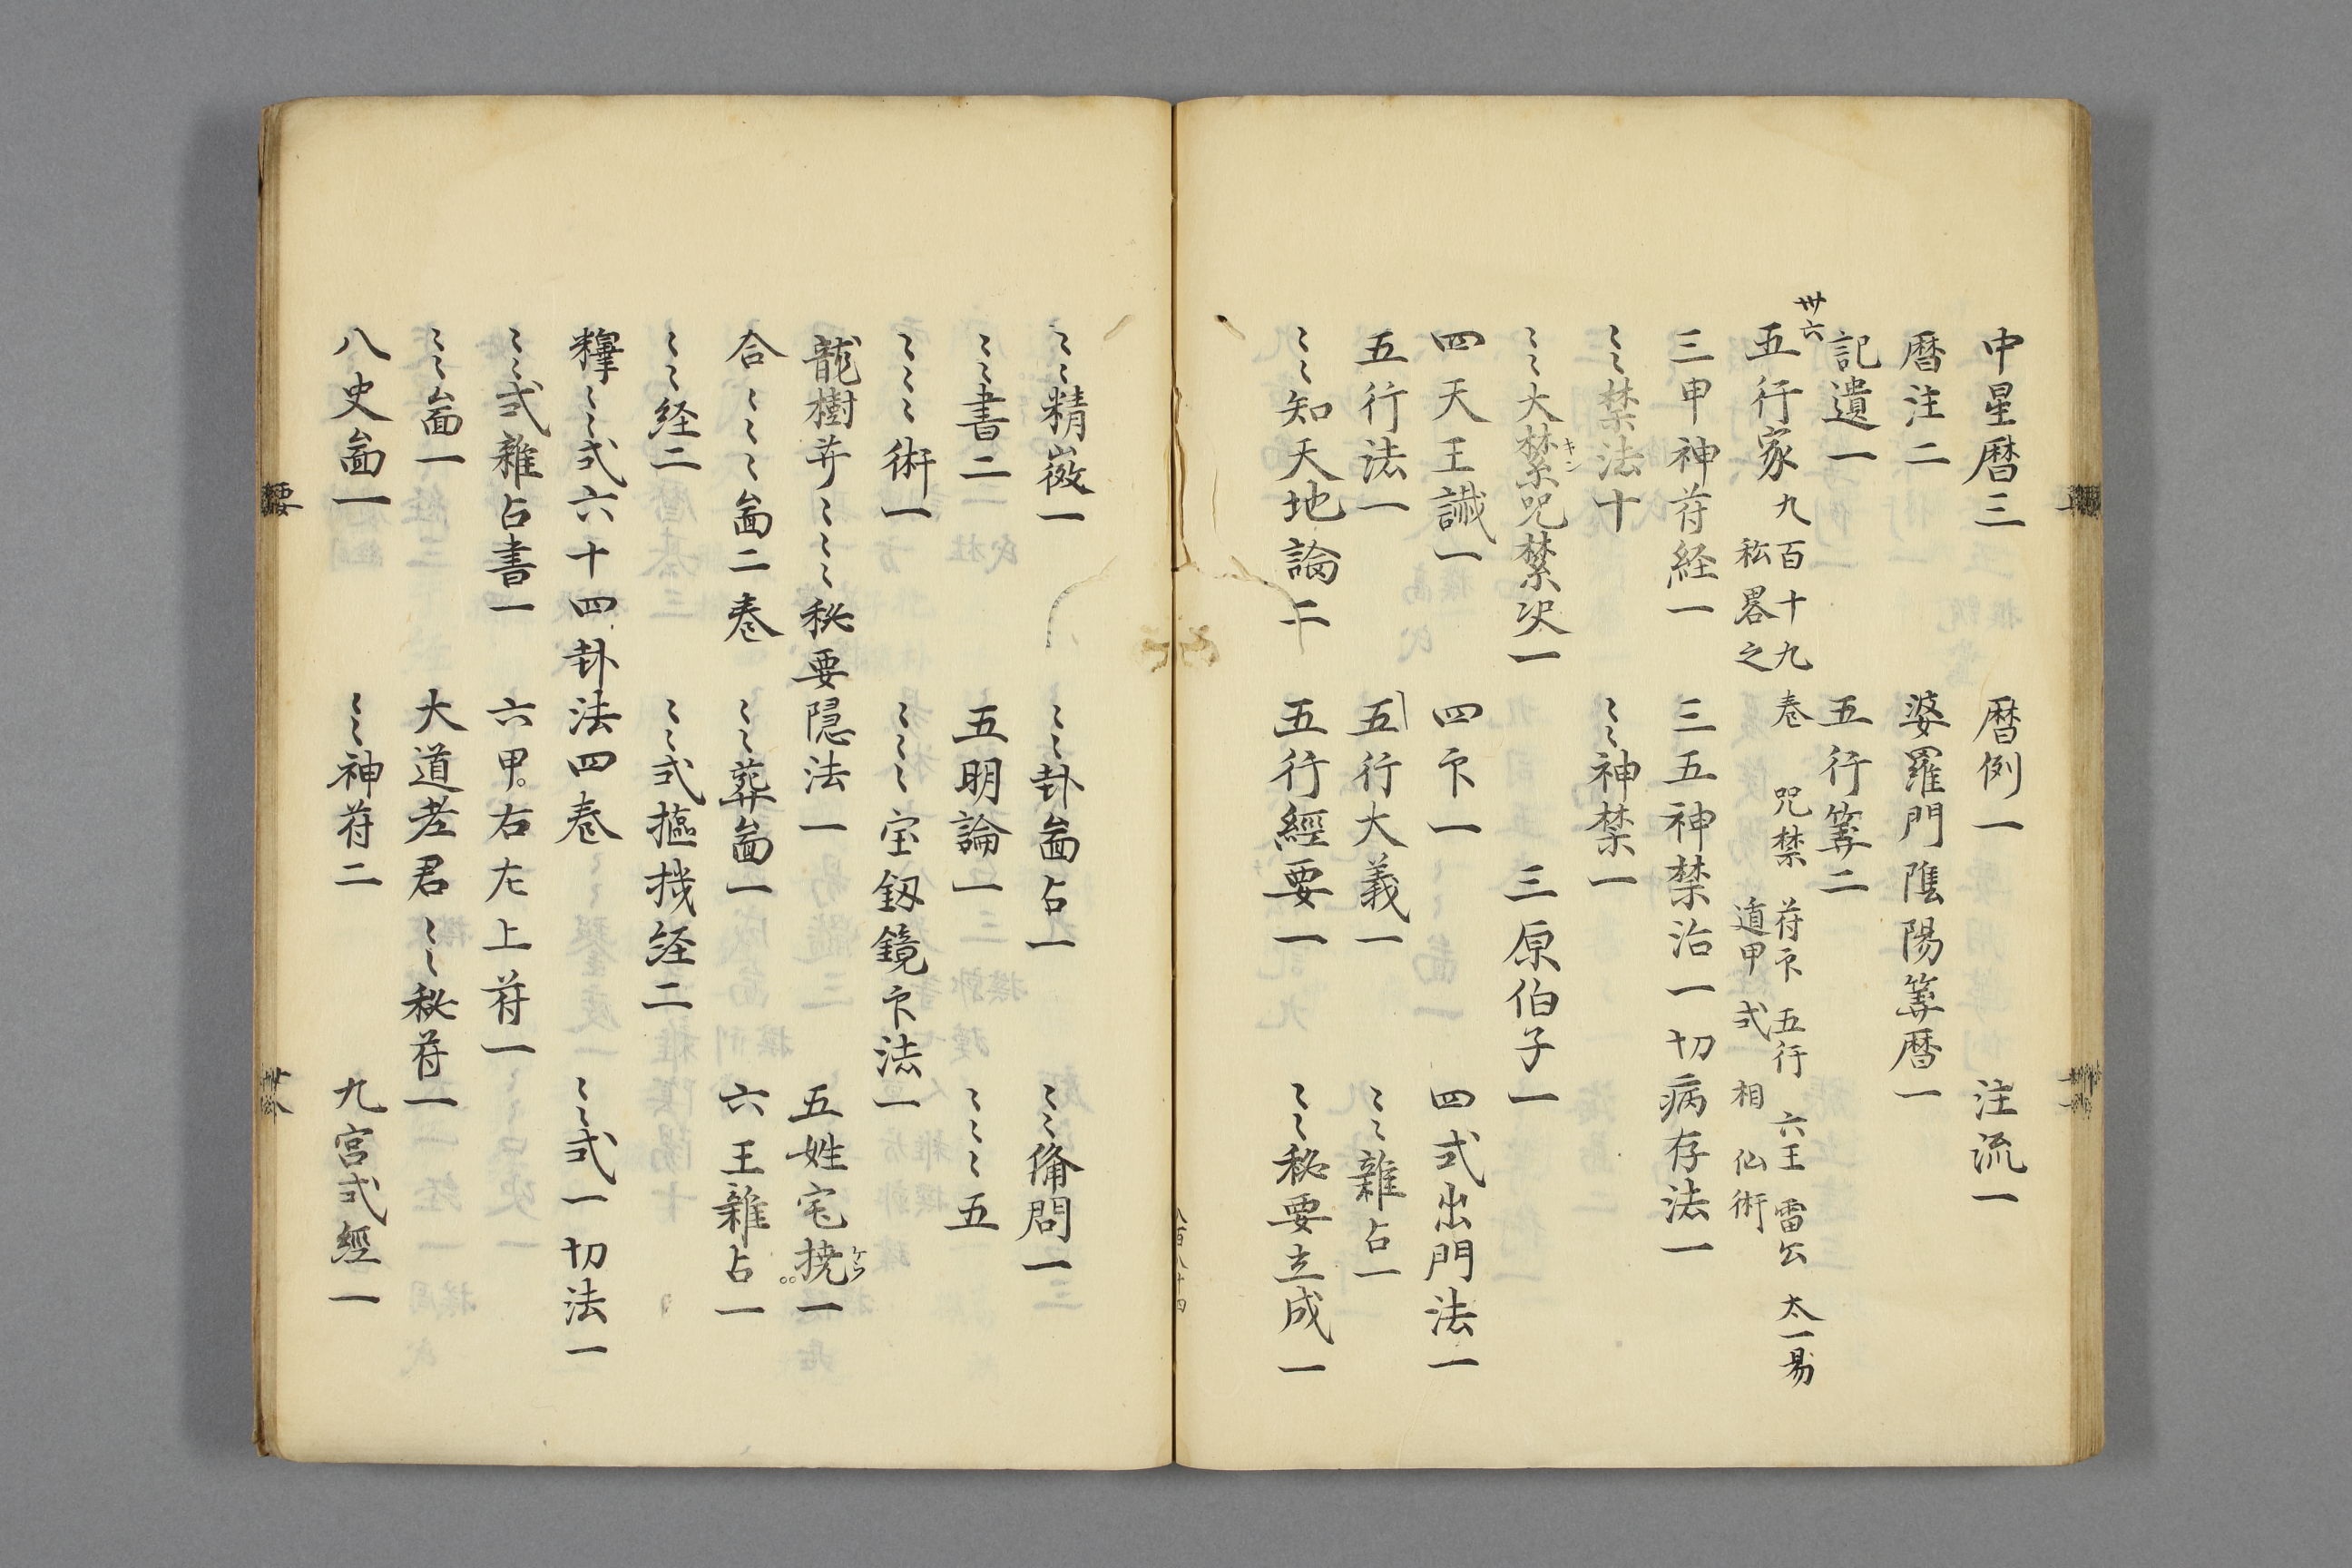 中星暦三 暦例一 注流一
暦注二 婆羅門隂陽筭暦一
記遺一 五行筭二
卅六
五行家 九百十九卷 咒禁 苻卬 五行 六壬 雷公 太一 易
私畧之 遁甲 式 相 仙術
三甲神苻経一 三五神禁治一切病存法一
〻〻禁法十 〻〻神禁一
〻〻大禁咒禁决一 三原伯子一
キン
四天王誡一 四卬一 四式出門法一
五行法一 五行大義一 〻〻雜占一
〻〻知天地論二 五行經要一 〻〻秘要立成一
〻〻精微一 〻〻卦啚占一 〻〻俻問一
〻〻書二 五明論一 〻〻〻五
〻〻〻術一 〻〻〻宝釼鏡卬法一
龍樹菩〻〻〻秘要隠法一 五姓宅撓一
合〻〻〻啚二巻 〻〻葬啚一 六壬雜占一
〻〻経二 〻〻式摳機経二
釋〻〻式六十四卦法四巻 〻〻式一切法一
〻〻式雜占書一 六甲右左上苻一
〻〻啚一 大道老君〻〻秘苻一
八史啚一 〻〻神苻二 九宮式經一